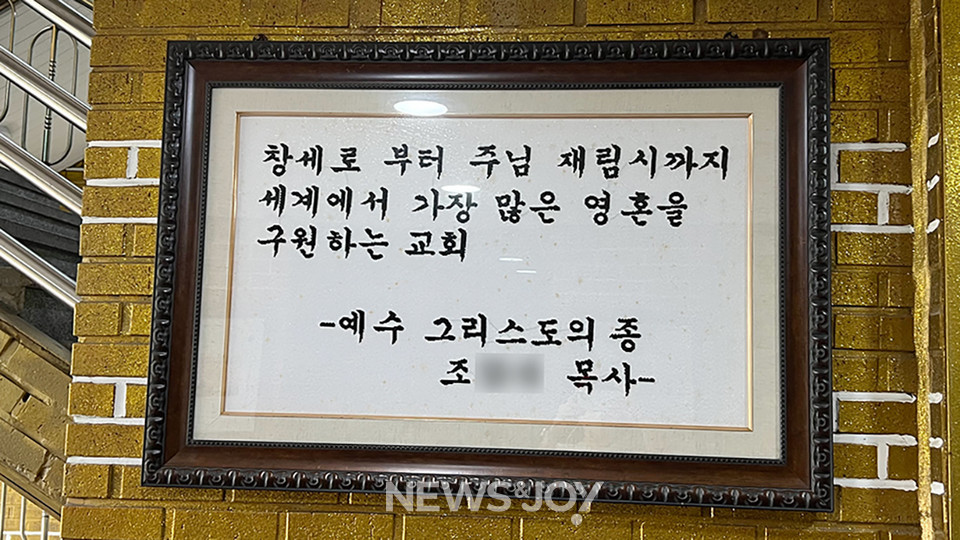 창세로 부터 주님 재림시까지
세계에서 가장 많은 영혼을
구원하는 교회
-예수 그리스도의 종
조 목사-
NEWS&JOY